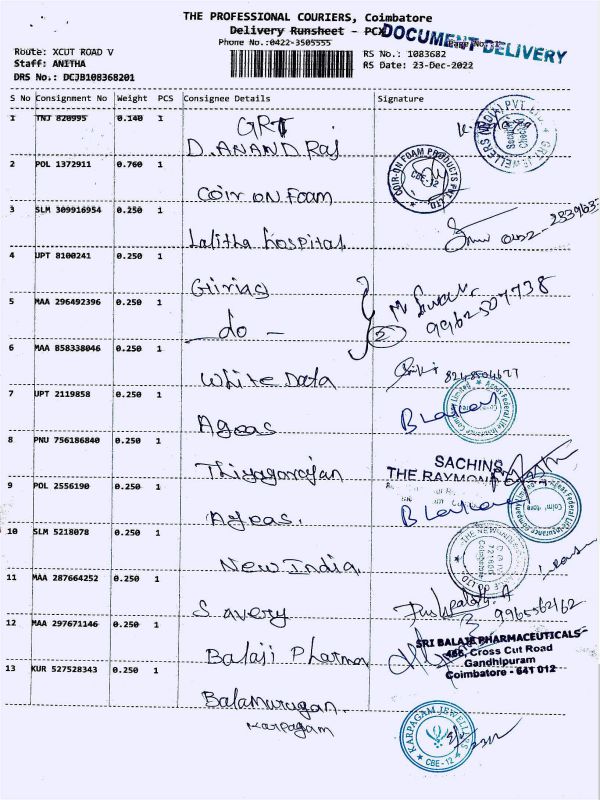 THE PROFESSIONAL COURIERS, Coimbatore
Delivery Runsheet - PCX
DOCUMENT DELIVERY
Phone No.:0422-3505555
Route: XCUT ROAD V
RS No.: 1083682
Staff: ANITHA
RS Date: 23-Dec-2022
DRS No.: DCJB108368201
S No Consignment No Weight PCS Consignee Details Signature
1 TNJ 820995 0.140 1 GRT
D. ANAND Raj
2 POL 1372911 0.760 1
COIR-ON FOAM PRODUCTS PVT. LTD.
CBE-12
Coir on Foam
3 SLM 309916954 0.250 1
Lalitha Hospital
4 UPT 8100241 0.250 1
Girias
5 MAA 296492396 0.250 1
9962507738
do - 2
6 MAA 858338046 0.250 1
White Data
7 UPT 2119858 0.250 1
Ageas Federal Life Insurance Company Limited
Ageas
8 PNU 756186840 0.250 1
SACHINS
Thiyagarajan THE RAYMOND
9 POL 2556190 0.250 1
Ageas Federal Life Insurance Company Limited
Ageas.
10 SLM 5218078 0.250 1
New India
11 MAA 287664252 0.250 1
9965562162
Savery
12 MAA 297671146 0.250 1
SRI BALAJI PHARMACEUTICALS
Balaji Pharma
468, Cross Cut Road
Gandhipuram
Coimbatore - 641 012
13 KUR 527528343 0.250 1
Balamurugan.
Karpagam
KARPAGAM JEWELLERS
CBE-12